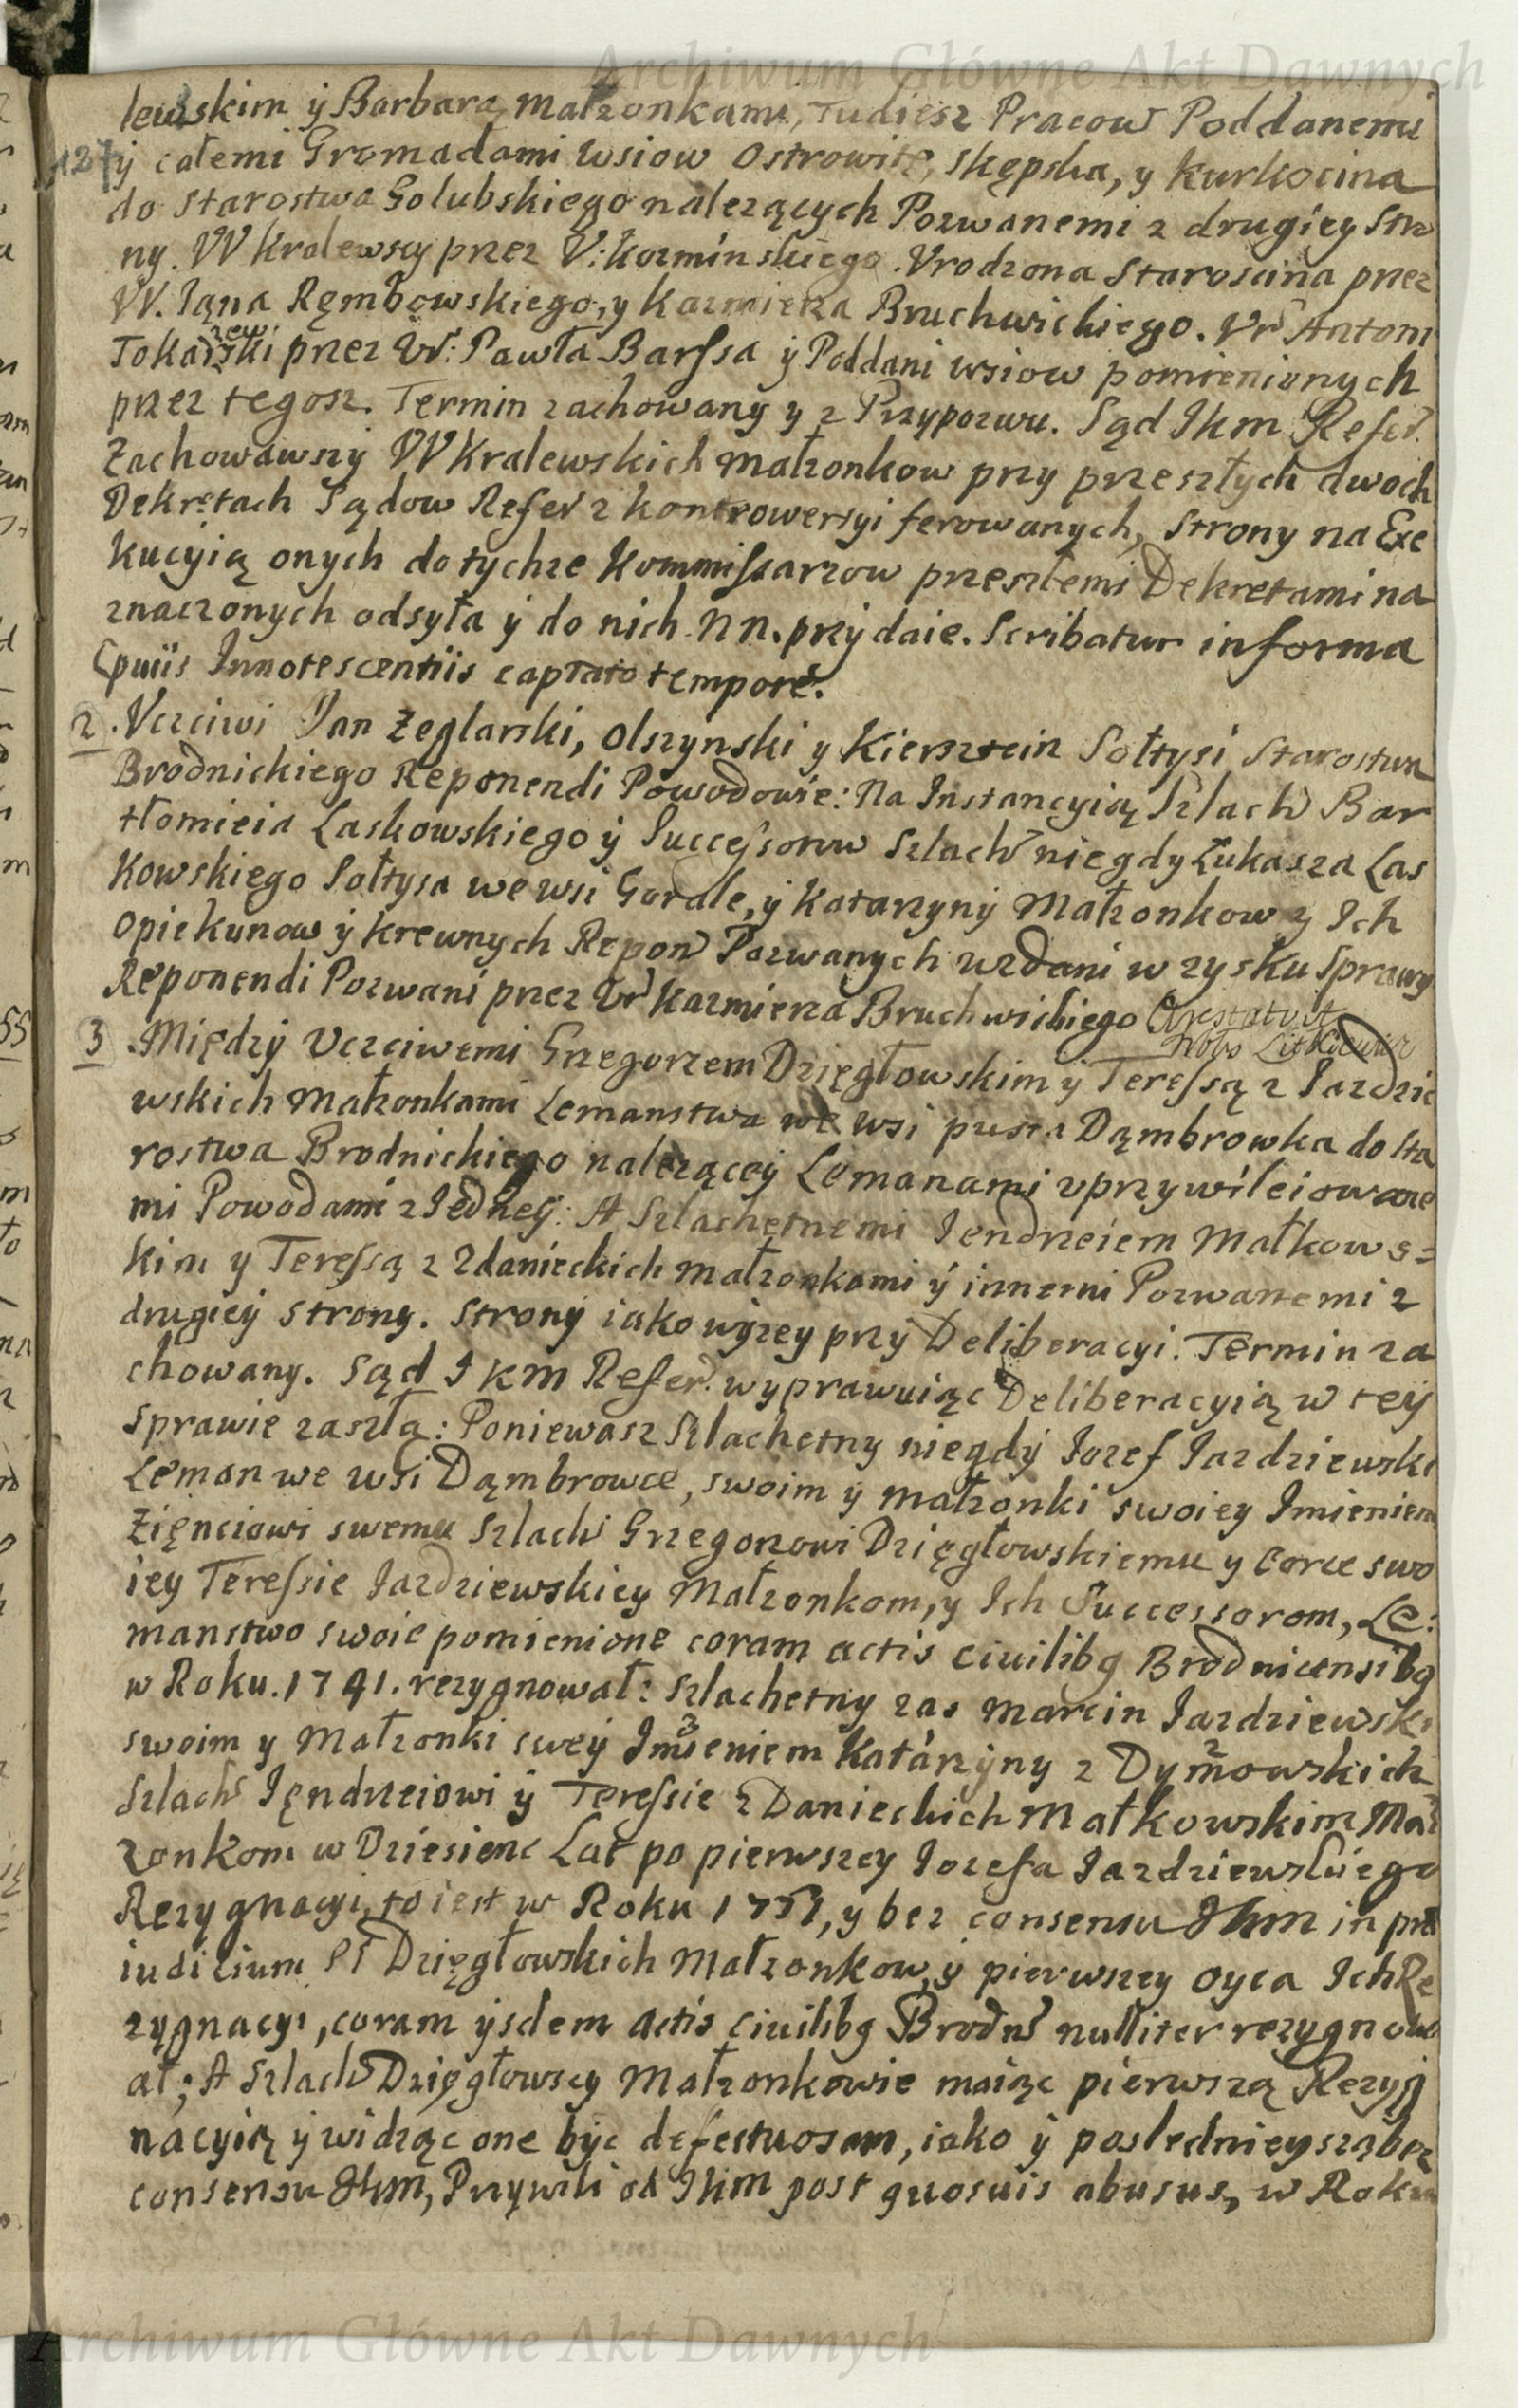 Archiwum Główne Akt Dawnych
lewskim ÿ Barbarą małzonkami, Tudiesz Pracow Poddanemi
127 ÿ całemi Gromadami wsiow Ostrowite, Skępska, y Kurkocina
do Starostwa Golubskiego nalezących Pozwanemi z drugiey Stro
ny. W Kralewscy przez V: Kozminskiego. Vrodzona Staroscina przez
W. Ignа Ręmbowskiego, y Kazmierza Bruchwickiego. Vr Antoni
Tokarzewski przez Vr: Pawła Barssa ÿ Poddani wsiow pomienionych
przez tegosz. Termin zachowany y z Przypozwu. Sąd Jkm Refer.
Zachowawszy W Kralewskich małzonkow przy przeszłych dwoch
Dekretach Sądow Refer z kontrowersyi ferowanych, Strony na Exe
kucyią onych do tychze Kommissarzow przeszłemi Dekretami na
znaczonych odsyła ÿ do nich NN. przydaie. Scribatur in forma
Innotescentiis captato tempore.
2. Vczciwi Jan Zeglarski, Olszynski y Kiersztein Sołtysi Starostwa
Brodnickiego Reponendi Powodowie: Na Instancyią Szlach Bar
tłomieia Laskowskiego ÿ Successorow Szlach niegdy Łukasza Las
kowskiego Sołtysa we wsi Gorale, ÿ Katarzyny Małzonkow y Ich
Opiekunow ÿ krewnych Repon Pozwanych wzdani w zysku Sprawy
Reponendi Pozwani przez Vr Kazmierza Bruchwickiego Arestatu
3. Między Vczciwemi Grzegorzem Dzięgłowskim ÿ Teressą z Jazdzie
wskich Małzonkami Lemanstwa we wsi pusta Dąmbrowka do Sta
rostwa Brodnickiego nalezącey Lemanami vprzywileiowane
mi Powodami z Iedney: A Szlachetnemi Jendrzeiem Małkows=
kim y Teressą z Zdanieckich małzonkami ÿ innemi Pozwanemi z
drugiey strony. Strony iako wyzey przy Deliberacyi. Termin za
chowany. Sąd Jkm Refer. wyprawuiąc Deliberacyią w teÿ
Sprawie zaszłą: Poniewasz Szlachetny niegdy Jozef Jazdziewski
Leman we wsi Dąmbrowce, swoim y małzonki swoiey Imieniem
Zięnciowi swemu Szlach Grzegorzowi Dzięgłowskiemu y Corce swo
iey Teressie Jazdziewskiey Małzonkom, y Ich Successorom, Le:
manstwo swoie pomienione coram actis ciuilibq Brodnicensibq
w Roku. 1741. rezygnował: Szlachetny zas Marcin Jazdziewski
swoim y Małzonki sweÿ Imieniem Katarzyny z Dymowskich
Szlach Jęndrzeiowi ÿ Teressie z Danieckich Małkowskim Mał
zonkom w Dziesienc Lat po pierwszey Jozefa Jazdziewskiego
Rezygnacyi, to iest w Roku 1751, y bez consensu Jkm in præ
iudicium Dzięgłowskich Małzonkow, ÿ pierwszey oyca Ich Re
zygnacyi, coram ysdem actis Ciuilibq Brodn nulliter rezygnow
ał; A Szlach Dzięgłowscy Małzonkowie maiąc pierwszą Rezyg
nacyią ÿ widząc one byc defectuosam, iako ÿ posledniey szą bez
consensu Jkm, Przywili od Jkm post quosuis abusus, w Roku
Archiwum Główne Akt Dawnych